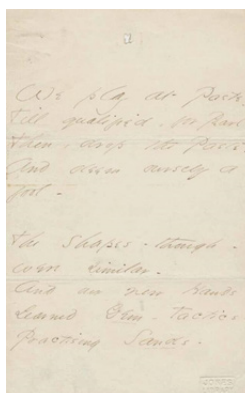 We play at Paste
till qualified, for Pearl
then, drop the Paste
And deem ourself a
fool -
The Shapes - though -
were similar -
And our new Hands
Learned Gem - Tactics
Practising Sands -